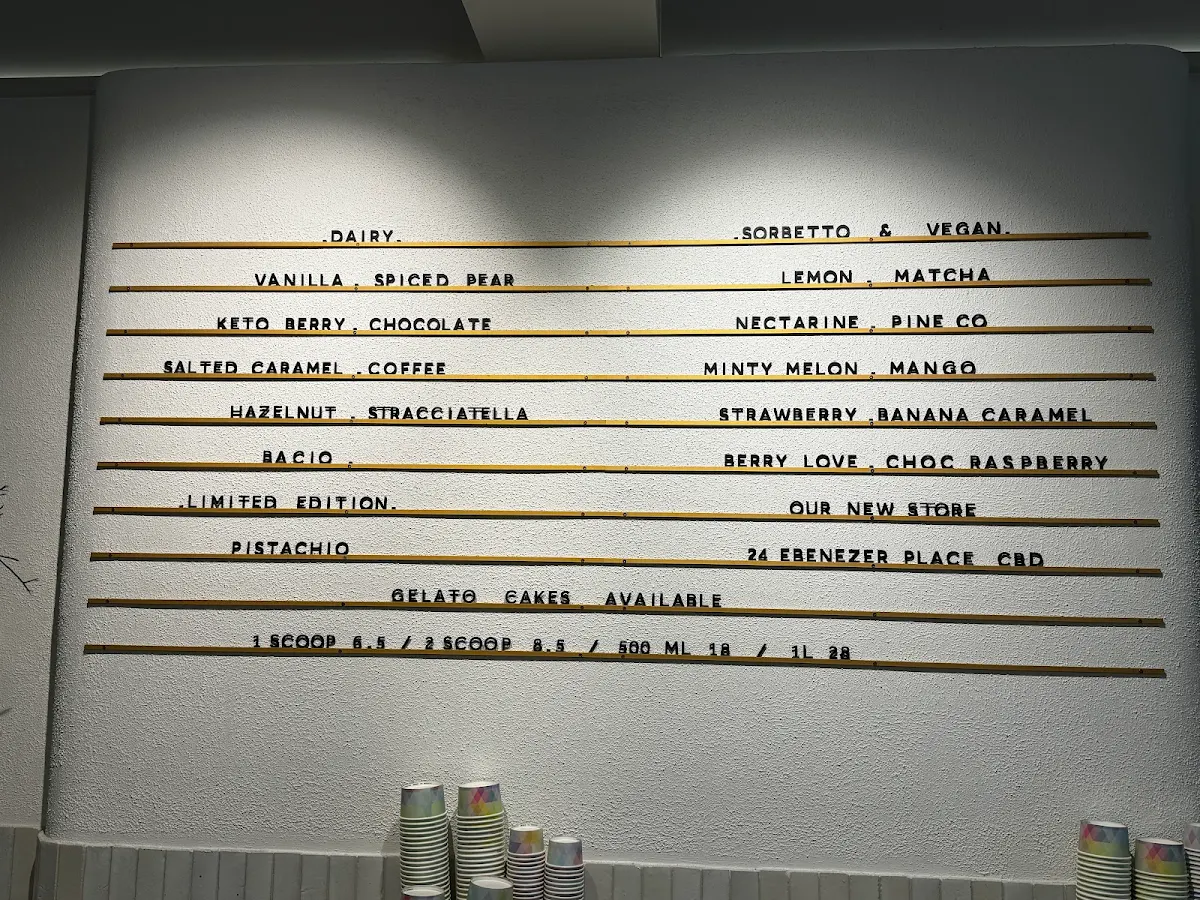 .DAIRY.
VANILLA . SPICED PEAR
KETO BERRY . CHOCOLATE
SALTED CARAMEL . COFFEE
HAZELNUT . STRACCIATELLA
BACIO .
.LIMITED EDITION.
PISTACHIO
.SORBETTO & VEGAN.
LEMON . MATCHA
NECTARINE . PINE CO
MINTY MELON . MANGO
STRAWBERRY . BANANA CARAMEL
BERRY LOVE . CHOC RASPBERRY
OUR NEW STORE
24 EBENEZER PLACE CBD
GELATO CAKES AVAILABLE
1 SCOOP 6.5 / 2 SCOOP 8.5 / 500 ML 18 / 1L 28